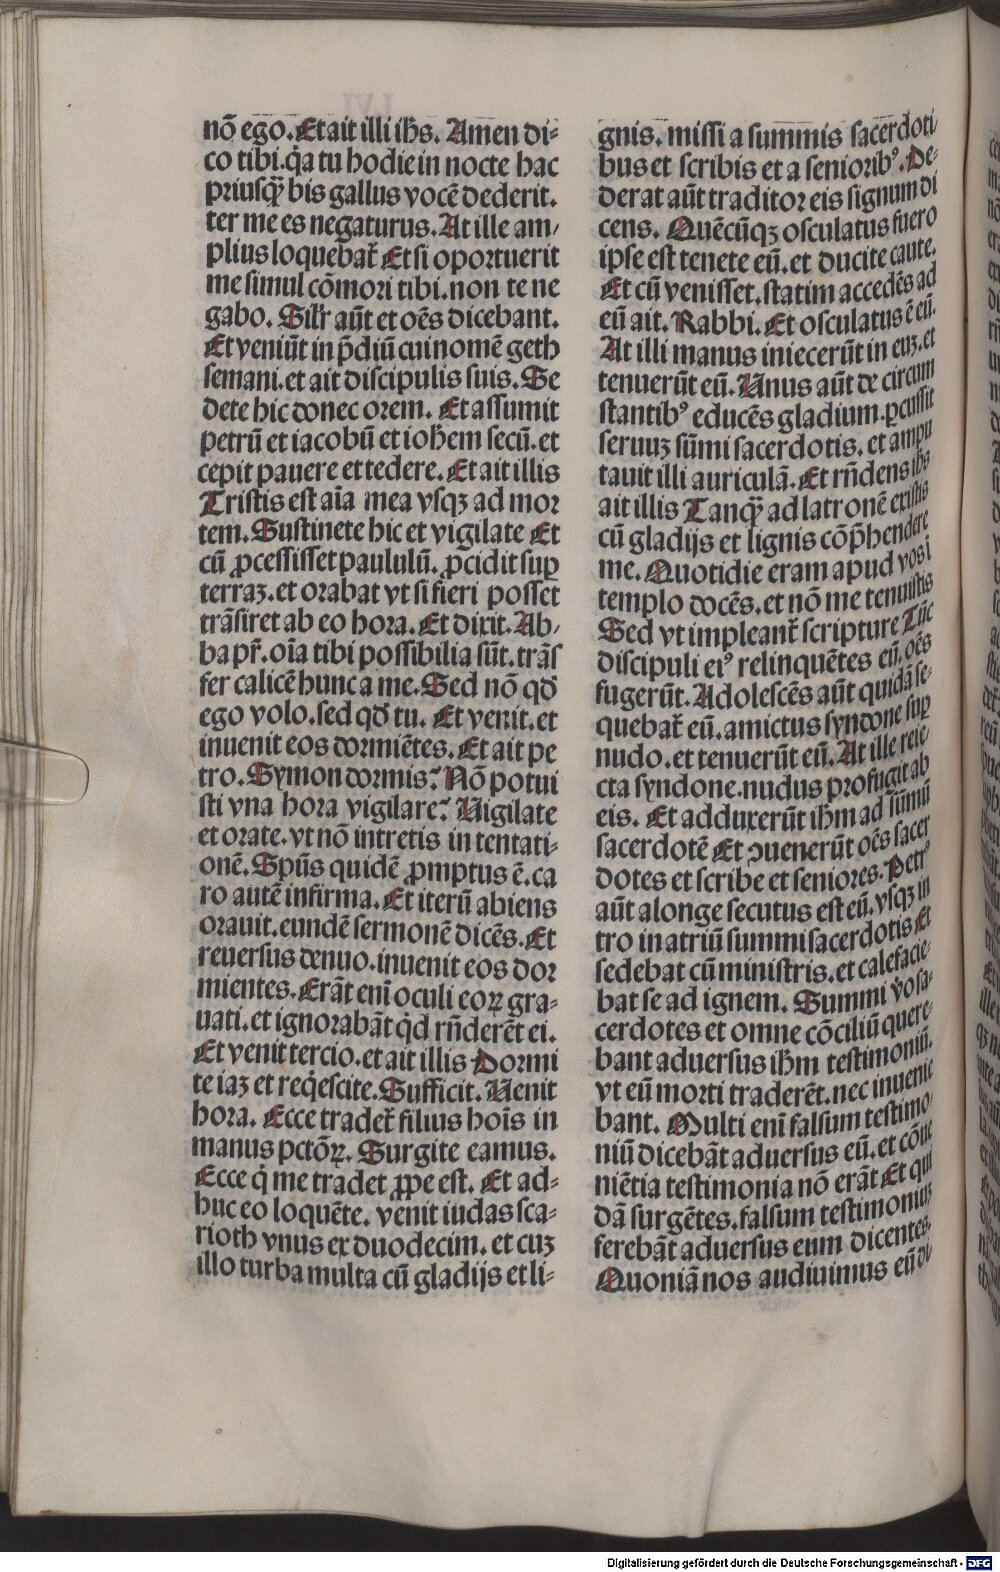 nõ ego. Et ait illi ihs̄. Amen di⸗
co tibi. q̇a tu hodie in nocte hac
priusqꝫ̄ bis gallus vocē dederit.
ter me es negaturus. At ille am⸗
plius loquebat̃ Et si oportuerit
me simul cõmori tibi. non te ne
gabo. Silr̃ aūt et oēs dicebant.
Et veniūt in p̄diū cui nomē geth
semani. et ait discipulis suis. Se
dete hic donec orem. Et assumit
petrū et iacobū et ioh̄em secū. et
cepit pauere et tedere. Et ait illis
Tristis est aīa mea vsqꝫ ad mor
tem. Sustinete hic et vigilate Et
cū ꝓcessisset paululū. ꝓcidit suꝑ
terraꝫ. et orabat vt si fieri posset
trāsiret ab eo hora. Et dixit. Ab⸗
ba pr̃. oīa tibi possibilia sūt. trās
fer calicē hunc a me. Sed nõ qd̄
ego volo. sed qd̄ tu. Et venit. et
inuenit eos dormiētes. Et ait pe
tro. Symon dormis? Nõ potui
sti vna hora vigilare? Uigilate
et orate. vt nõ intretis in tentati⸗
onē. Spūs quidē ꝓmptus ē. ca
ro autē infirma. Et iterū abiens
orauit. eundē sermonē dicēs. Et
reuersus denuo. inuenit eos dor
mientes. Erāt enī oculi eoꝝ gra⸗
uati. et ignorabāt qd̓ rñderēt ei.
Et venit tercio. et ait illis Dormi
te iaꝫ et req̇escite. Sufficit. Uenit
hora. Ecce tradet̃ filius hoīs in
manus pctõꝝ. Surgite eamus.
Ecce q̇ me tradet ꝓpe est. Et ad⸗
huc eo loquēte. venit iudas sca⸗
rioth vnus ex duodecim. et cuꝫ
illo turba multa cū gladijs et li⸗
gnis. missi a summis sacerdoti
bus et scribis et a senioribꝰ. De⸗
derat aūt traditor eis signum di
cens. Quēcūqꝫ osculatus fuero
ipse est tenete eū. et ducite caute.
Et cū venisset. statim accedēs ad
eū ait. Rabbi. Et osculatus ē eū.
At illi manus iniecerūt in euꝫ. et
tenuerūt eū. Unus aūt de circum
stantibꝰ educēs gladium. ꝑcussit
seruuꝫ sūmi sacerdotis. et ampu
tauit illi auriculā. Et rñdens ihs̄
ait illis Tanqꝫ̄ ad latronē existis
cū gladijs et lignis cõp̄hendere
me. Quotidie eram apud vos ī
templo docēs. et nõ me tenuistis
Sed vt impleant̃ scripture Tūc
discipuli eiꝰ relinquētes eū. oēs
fugerūt. Adolescēs aūt quidā se⸗
quebat̃ eū. amictus syndone suꝑ
nudo. et tenuerūt eū. At ille reie⸗
cta syndone. nudus profugit ab
eis. Et adduxerūt ihm̄ ad sūmū
sacerdotē Et ꝯuenerūt oēs sacer
dotes et scribe et seniores. Petrꝰ
aūt a longe secutus est eū. vsqꝫ in
tro in atriū summi sacerdotis Et
sedebat cū ministris. et calefacie⸗
bat se ad ignem. Summi v̊o sa⸗
cerdotes et omne cõciliū quere⸗
bant aduersus ihm̄ testimoniū.
vt eū morti traderēt. nec inuenie
bant. Multi enī falsum testimo⸗
niū dicebāt aduersus eū. et cõue
niētia testimonia nõ erāt Et qui
dā surgētes. falsum testimoniuꝫ
ferebāt aduersus eum dicentes.
Quoniā nos audiuimus eū di⸗
Digitalisierung gefördert durch die Deutsche Forschungsgemeinschaft - DFG